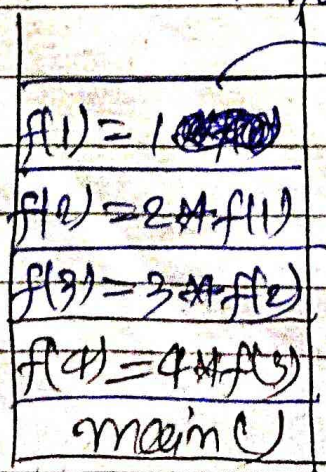 f(1) = 1
f(2) = 2 * f(1)
f(3) = 3 * f(2)
f(4) = 4 * f(3)
main()